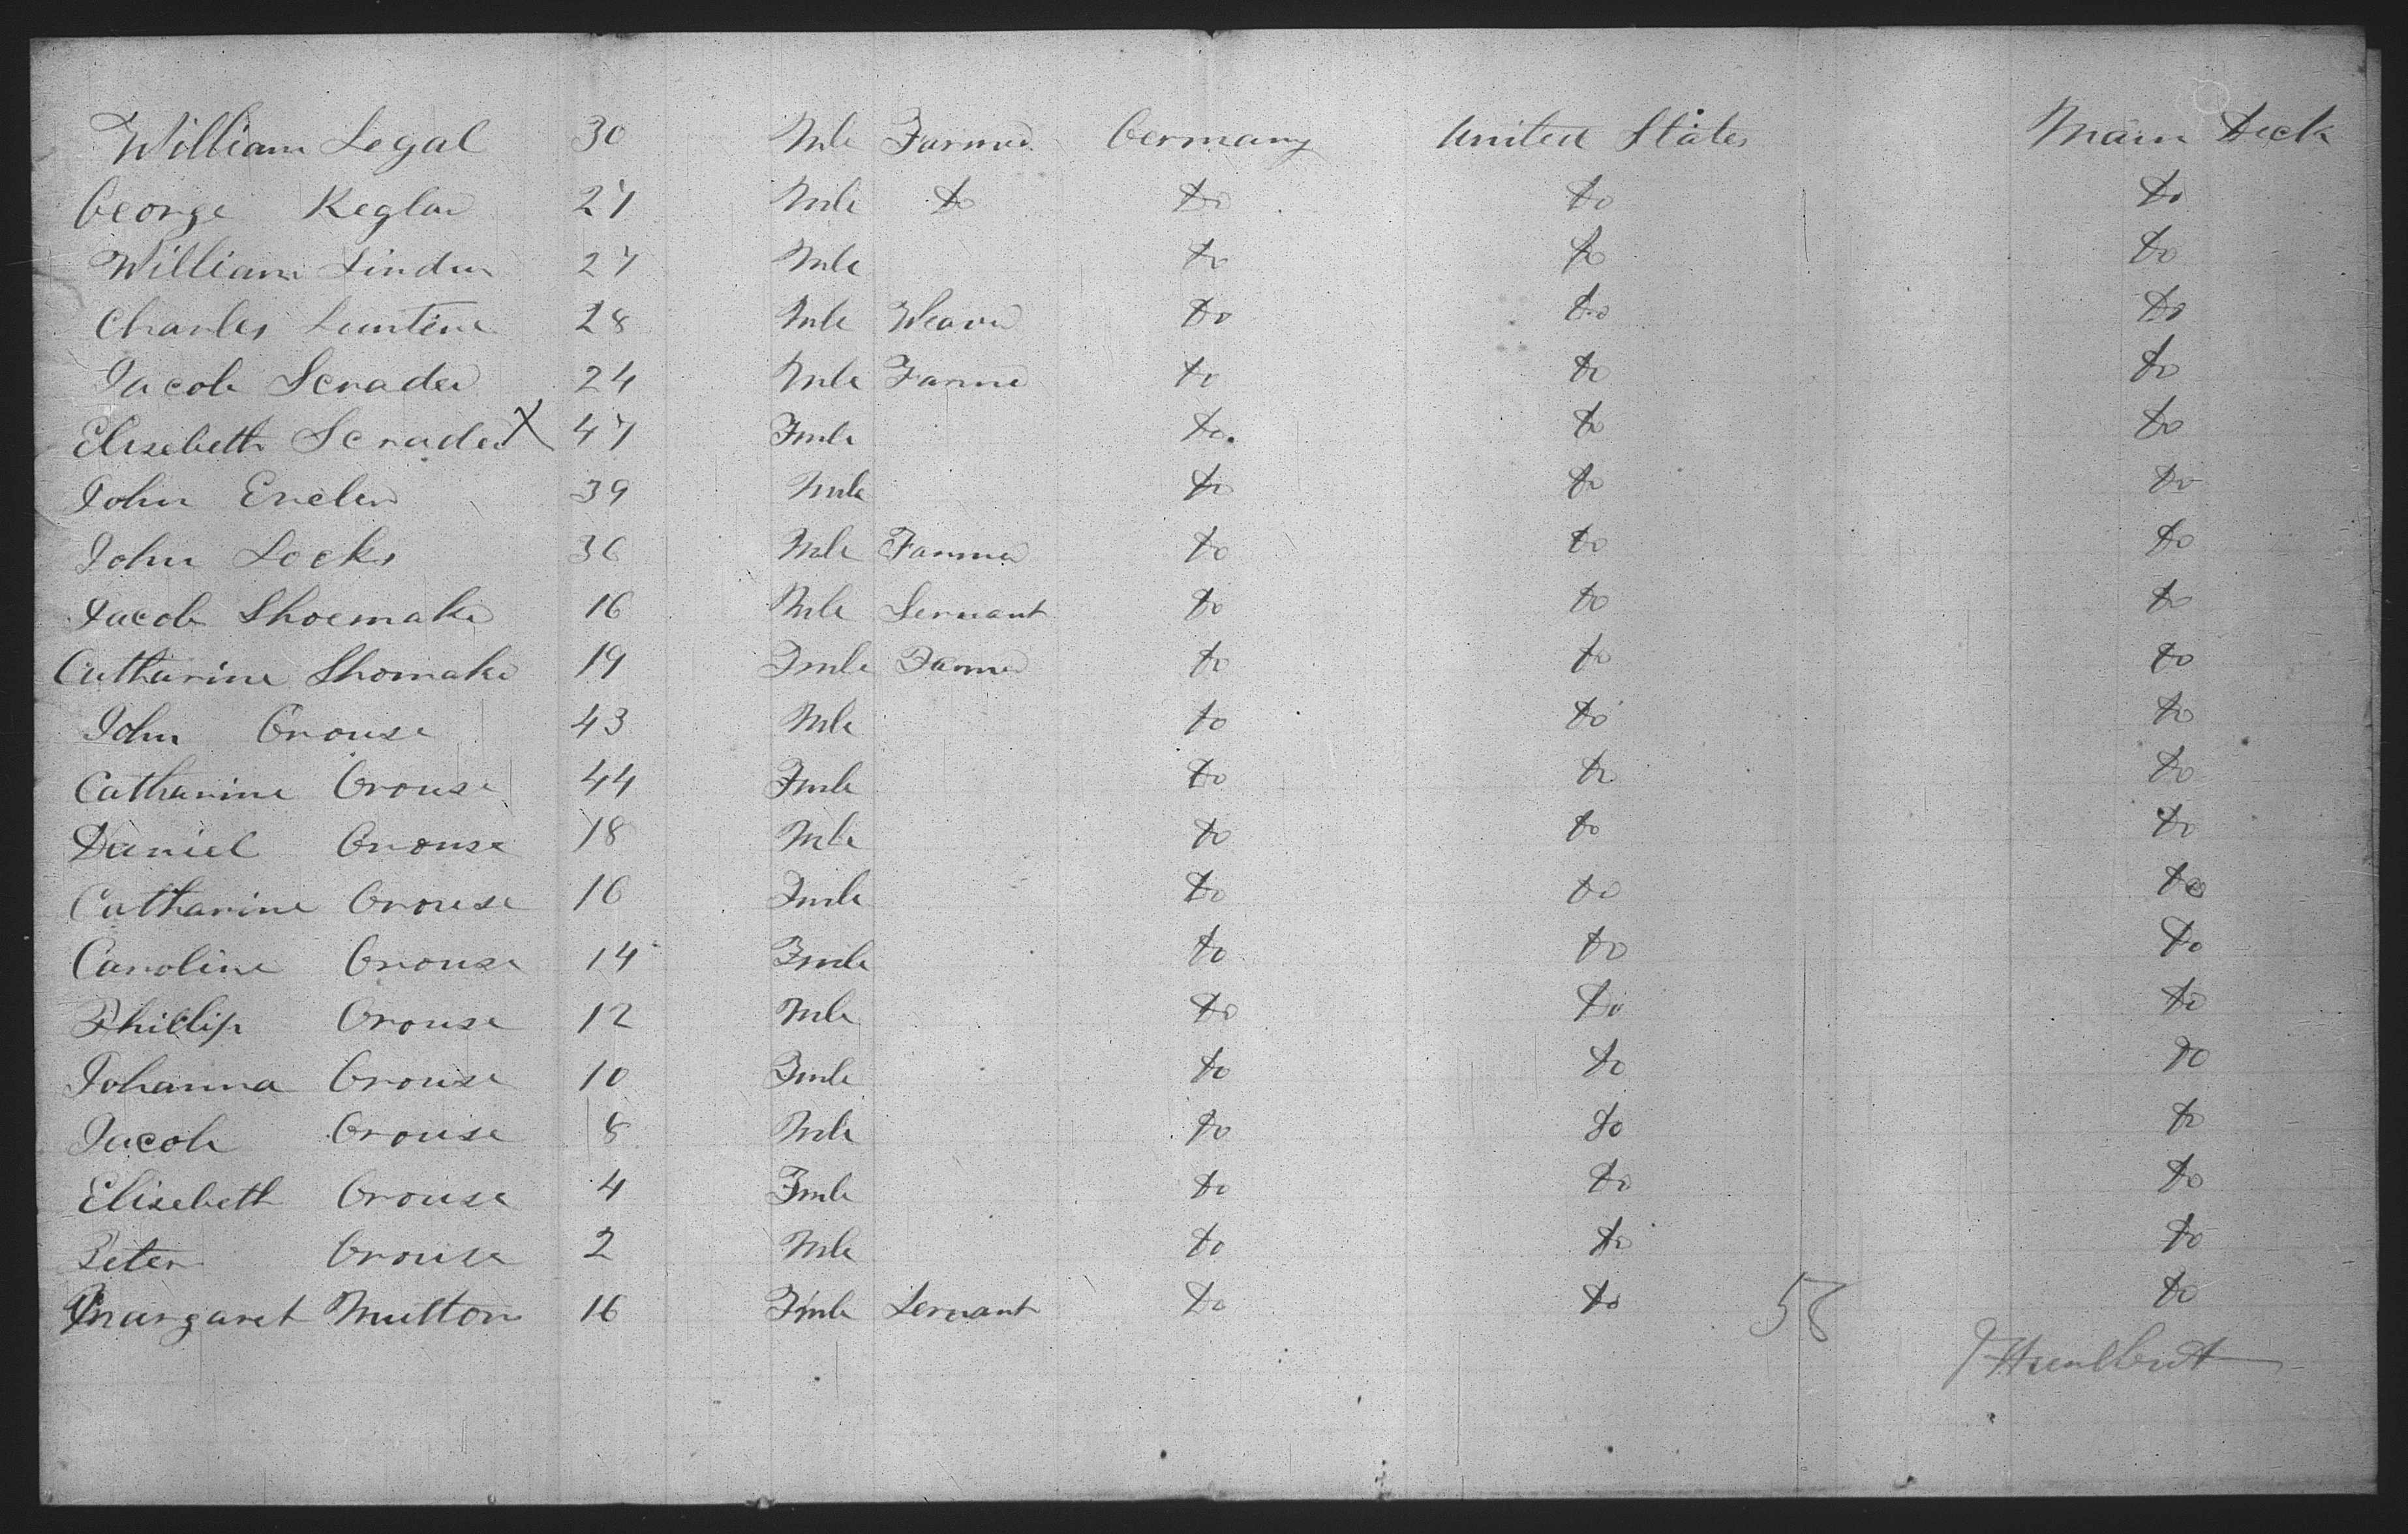 William Legal 30 Mle Farmer Germany United States Main Deck
George Keglar 27 Mle do do do do
William Linden 27 Mle do do do
Charles Luntine 28 Mle Weaver do do do
Jacob Scrader 24 Mle Farmer do do do
Elisebeth Scrader X 47 Fmle do do do
John Eneler 39 Mle do do do
John Locks 36 Mle Farmer do do do
Jacob Shoemaker 16 Mle Servant do do do
Catharine Shomaker 19 Fmle Farmer do do do
John Grouse 43 Mle do do do
Catharine Grouse 44 Fmle do do do
Daniel Grouse 18 Mle do do do
Catharine Grouse 16 Fmle do do do
Caroline Grouse 14 Fmle do do do
Phillip Grouse 12 Mle do do do
Johanna Grouse 10 Fmle do do do
Jacob Grouse 8 Mle do do do
Elisebeth Grouse 4 Fmle do do do
Peter Grouse 2 Mle do do do
Margaret Mutton 16 Fmle Servant do do do
58
J Hurlbut